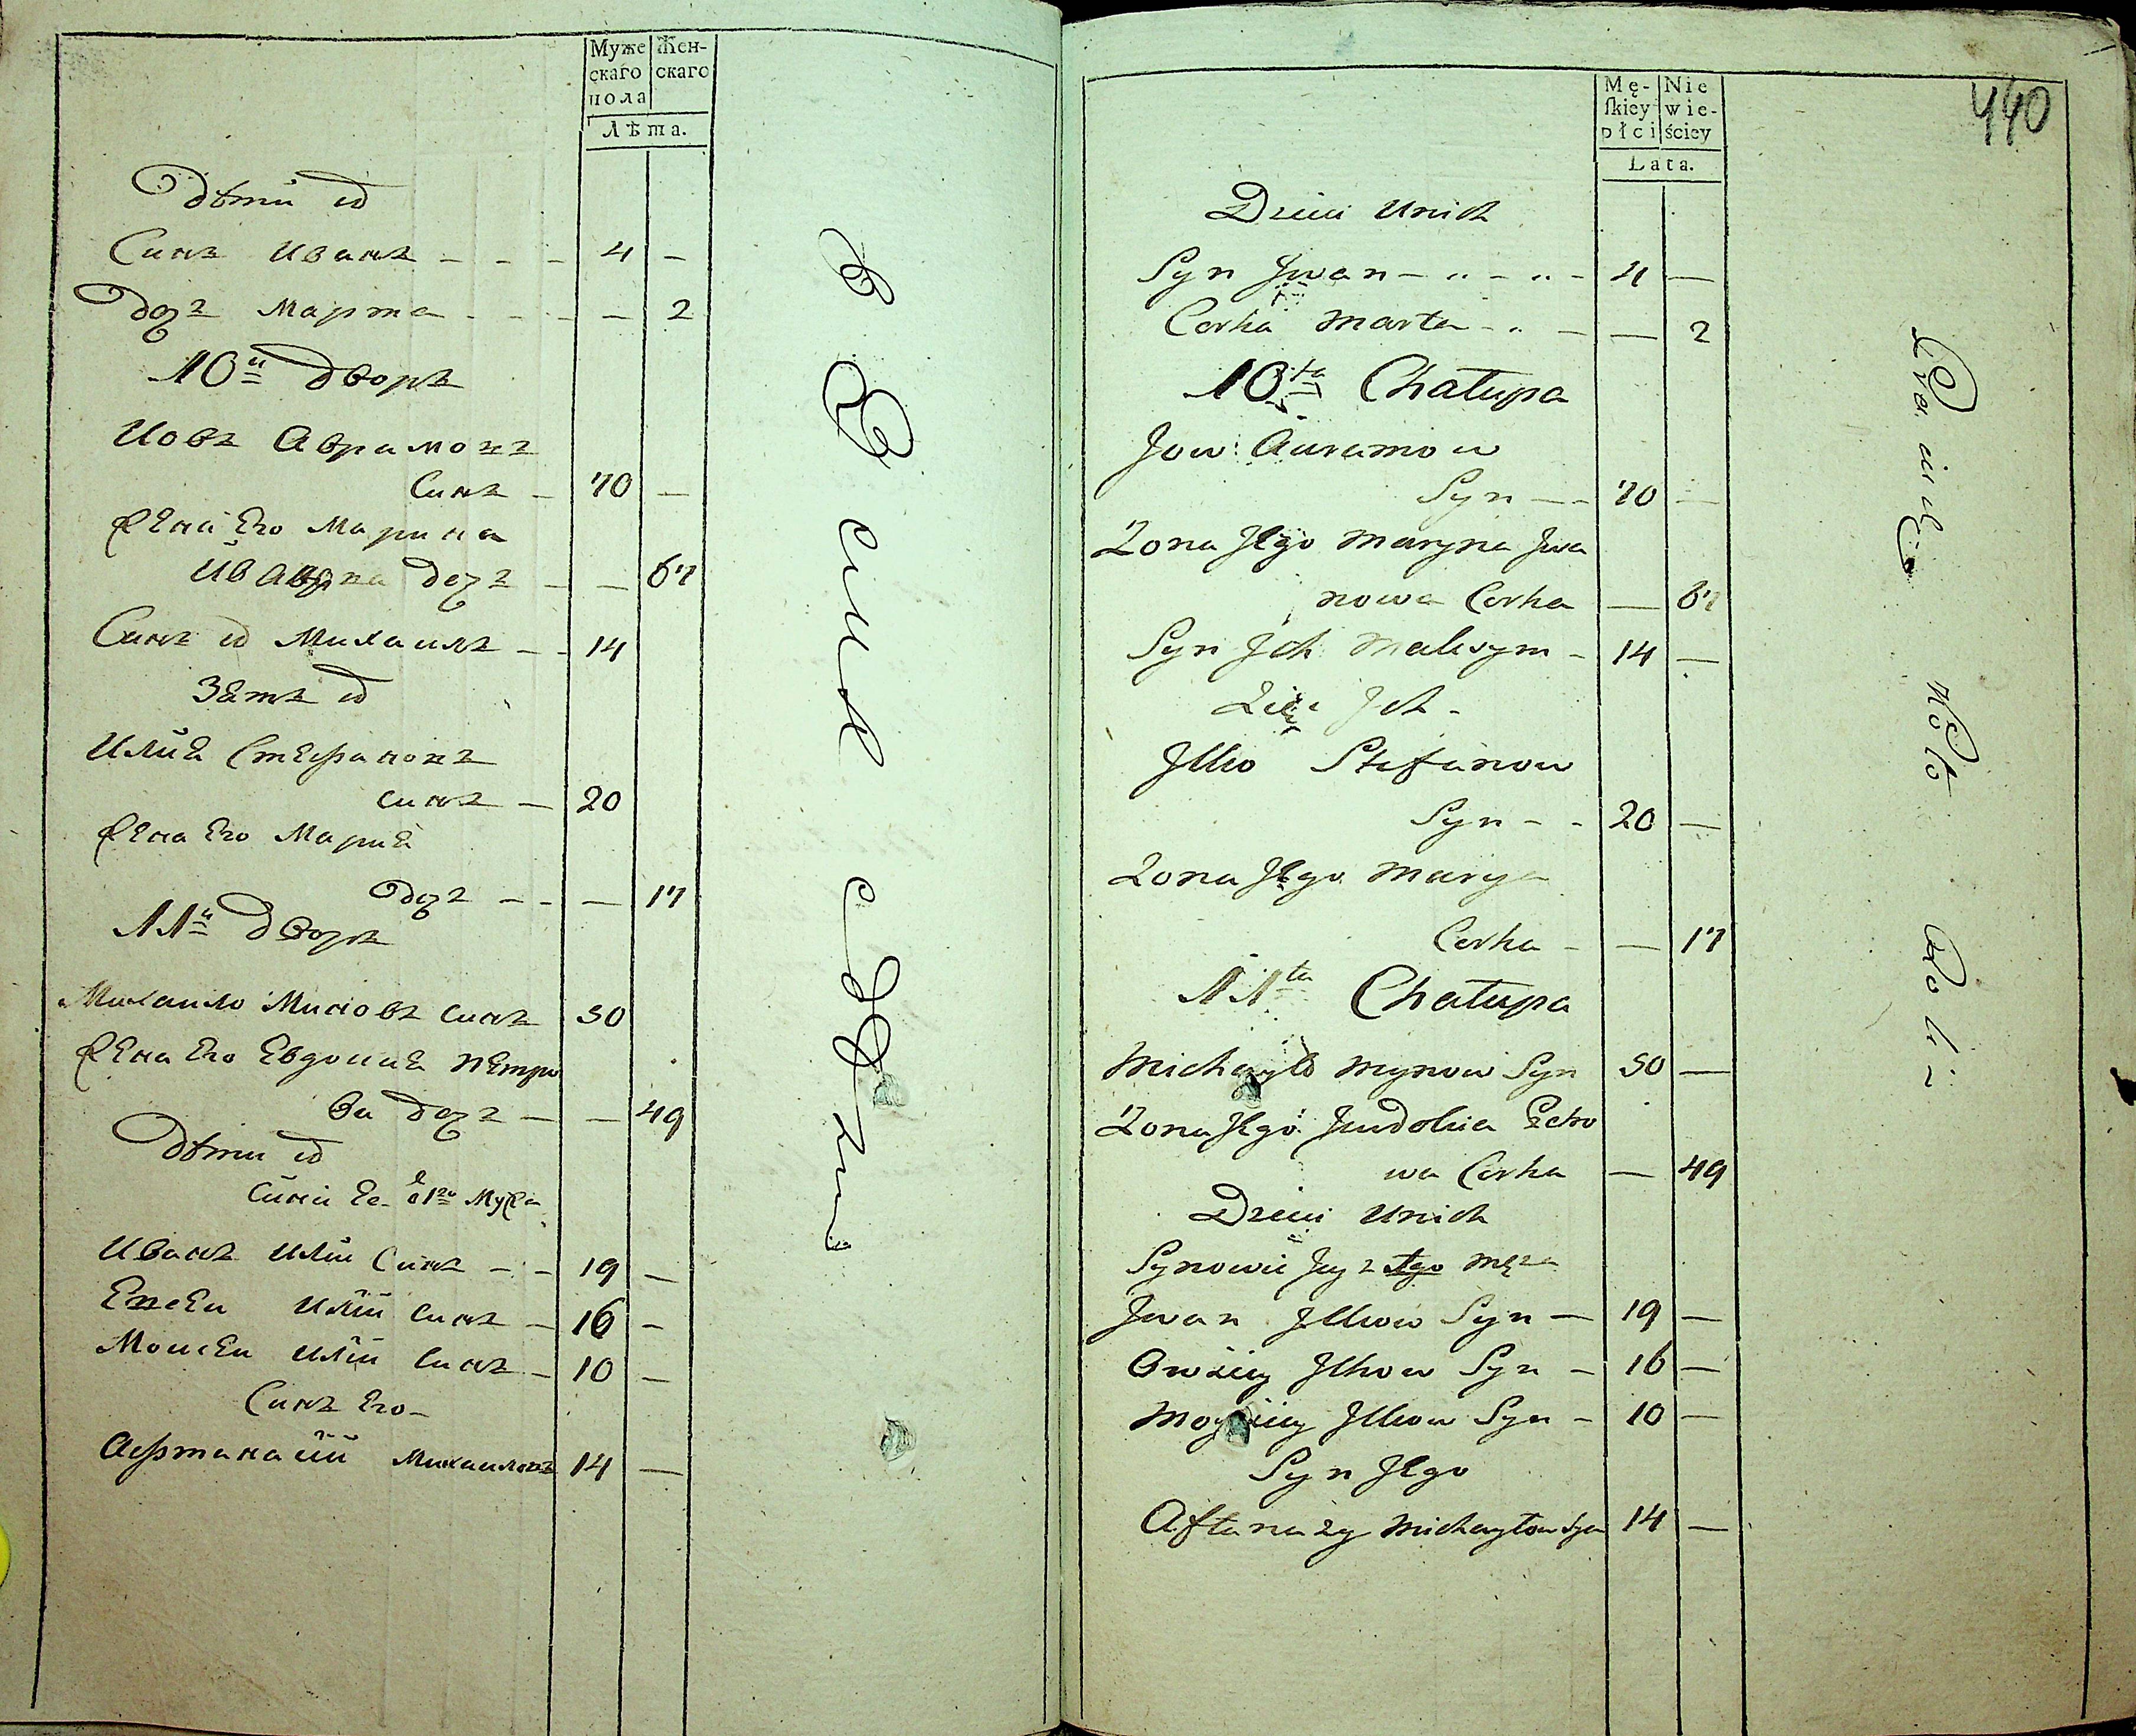 Муже
скаго
пола
Жен-
скаго
Лѣта.
Дѣти ихъ
Синъ Иванъ - - - 4 -
Доч Марта - - - - 2
10й Дворъ
Иовъ Аврамовъ
Синъ - 70 -
Жена Его Марина
Иванова доч - - 67
Синъ их Михаилъ - - 14
Зять их
Илия Стефановъ
синъ - 20
Жена Его Мария
доч - - - 17
11й Дворъ
Михаило Миновъ синъ 50
Жена Его Евдокия Петро
ва доч - - 49
Дѣти их
Сини Ее 1го Мужа
Иванъ Илии Синъ - - 19 -
Илии синъ - 16 -
Моисеи Илии синъ - 10 -
Синъ Его -
Афтанаий Михаиловъ 14 -
Mę-
skiey
płci
Nie
wie-
ściey
Lata.
440
Dzieci Unich
Syn Jwan - " - " - 4 -
Corka Marta - " - - 2
10ta Chałupa
Jow Auramow
Syn - - 70 -
Zona Jego Maryna Jwa
nowa Corka - 67
Syn Jch Maksym - 14 -
Zięć Jch -
Jlko Stefanow
Syn - - 20 -
Zona Jego Marya
Corka - - 17
11ta Chałupa
Michayło Mynow Syn 50 -
Zona Jego Jewdokia Petro
wa Corka - 49
Dzieci Unich
Synowie Jey z 1go Męża
Jwan Jlkow Syn - 19 -
Owsiey Jlkow Syn - 16 -
Moysiey Jlkow Syn - 10 -
Syn Jego
Aftanazy Michayłow Syn 14 -